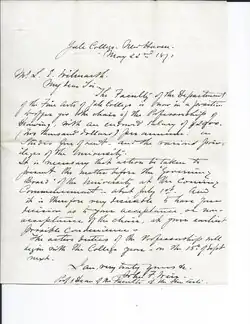 Yale College, New Haven.
May 22nd 1871
Mr. L. E. Wilmarth
My dear Sir
The Faculty of the Department
of the Fine Arts of Yale College is now in a position
to offer you the chair of the Professorship of
Drawing, with an annual salary of $2000
(two thousand dollars) per annum, a
Studio free of rent. and the various privi-
leges of the University.
It is necessary that action be taken to
present the matter before the "governing
Board" of the University at the coming
Commencement in July next. And
it is therefore very desirable to have your
decision as to your acceptance or non-
acceptance of the chair, at your earliest
possible convenience.
The active duties of the Professorship will
begin with the College year on the 15th of Sept
next.
I am very truly yours
John F.
Prof & Dean of the Faculty of the Fine Arts